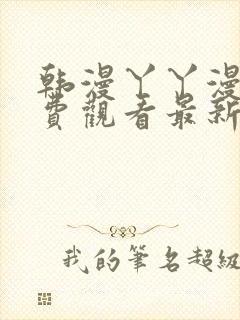 韩漫丫丫漫
費觀看最新
我的筆名超級